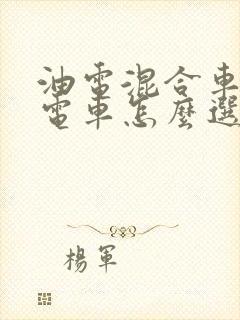 油電混合車
電車怎麼選
楊軍